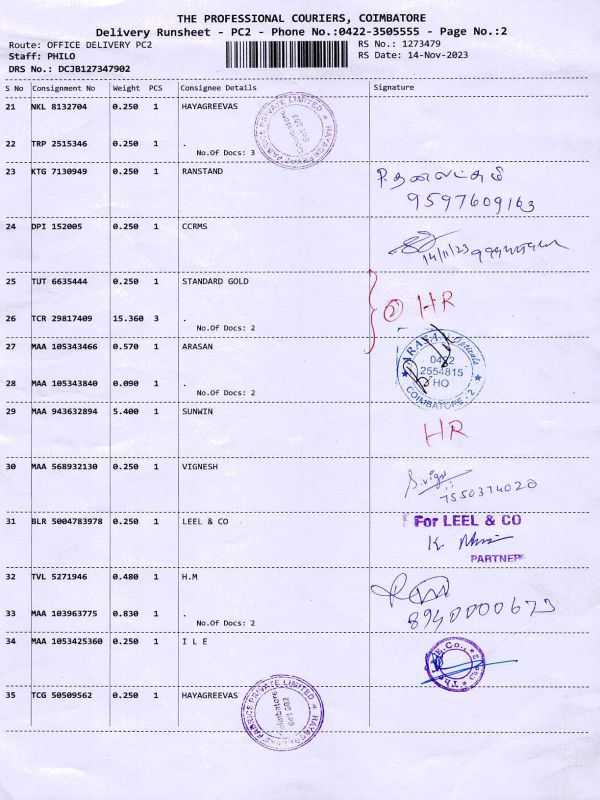 THE PROFESSIONAL COURIERS, COIMBATORE
Delivery Runsheet - PC2 - Phone No.:0422-3505555 - Page No.:2
Route: OFFICE DELIVERY PC2 RS No.: 1273479
Staff: PHILO RS Date: 14-Nov-2023
DRS No.: DCJB127347902
S No Consignment No Weight PCS Consignee Details Signature
21 NKL 8132704 0.250 1 HAYAGREEVAS
22 TRP 2515346 0.250 1 .
No.Of Docs: 3
23 KTG 7130949 0.250 1 RANSTAND
9597609163
24 DPI 152005 0.250 1 CCRMS
14/11/23
25 TUT 6635444 0.250 1 STANDARD GOLD
② HR
26 TCR 29817409 15.360 3 .
No.Of Docs: 2
27 MAA 105343466 0.570 1 ARASAN
ARASAN Opticals
0422
2554815
HO
COIMBATORE - 2
28 MAA 105343840 0.090 1 .
No.Of Docs: 2
29 MAA 943632894 5.400 1 SUNWIN
HR
30 MAA 568932130 0.250 1 VIGNESH
7550374020
31 BLR 5004783978 0.250 1 LEEL & CO
For LEEL & CO
PARTNER
32 TVL 5271946 0.480 1 H.M
8940000673
33 MAA 103963775 0.830 1 .
No.Of Docs: 2
34 MAA 1053425360 0.250 1 I L E
35 TCG 50509562 0.250 1 HAYAGREEVAS
FABRICS PRIVATE LIMITED